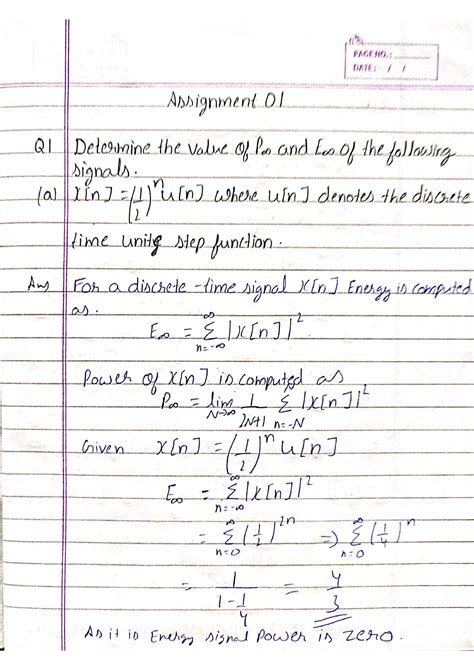 PAGE NO.:
DATE: / /
Assignment 01
Q1 Determine the value of P∞ and E∞ of the following
signals.
(a) x[n] = (1/2)^n u[n] where u[n] denotes the discrete
time unit step function.
Ans For a discrete-time signal x[n] Energy is computed
as.
E∞ = ∞Σn=-∞ |x[n]|²
Power of x[n] is computed as
P∞ = lim N→∞ 1/2N+1 Σ n=-N |x[n]|²
Given x[n] = (1/2)^n u[n]
E∞ = ∞Σn=-∞ |x[n]|²
= ∞Σn=0 (1/2)^2n ⇒ ∞Σn=0 (1/4)^n
= 1/(1-1/4) = 4/3
As it is Energy signal Power is zero.